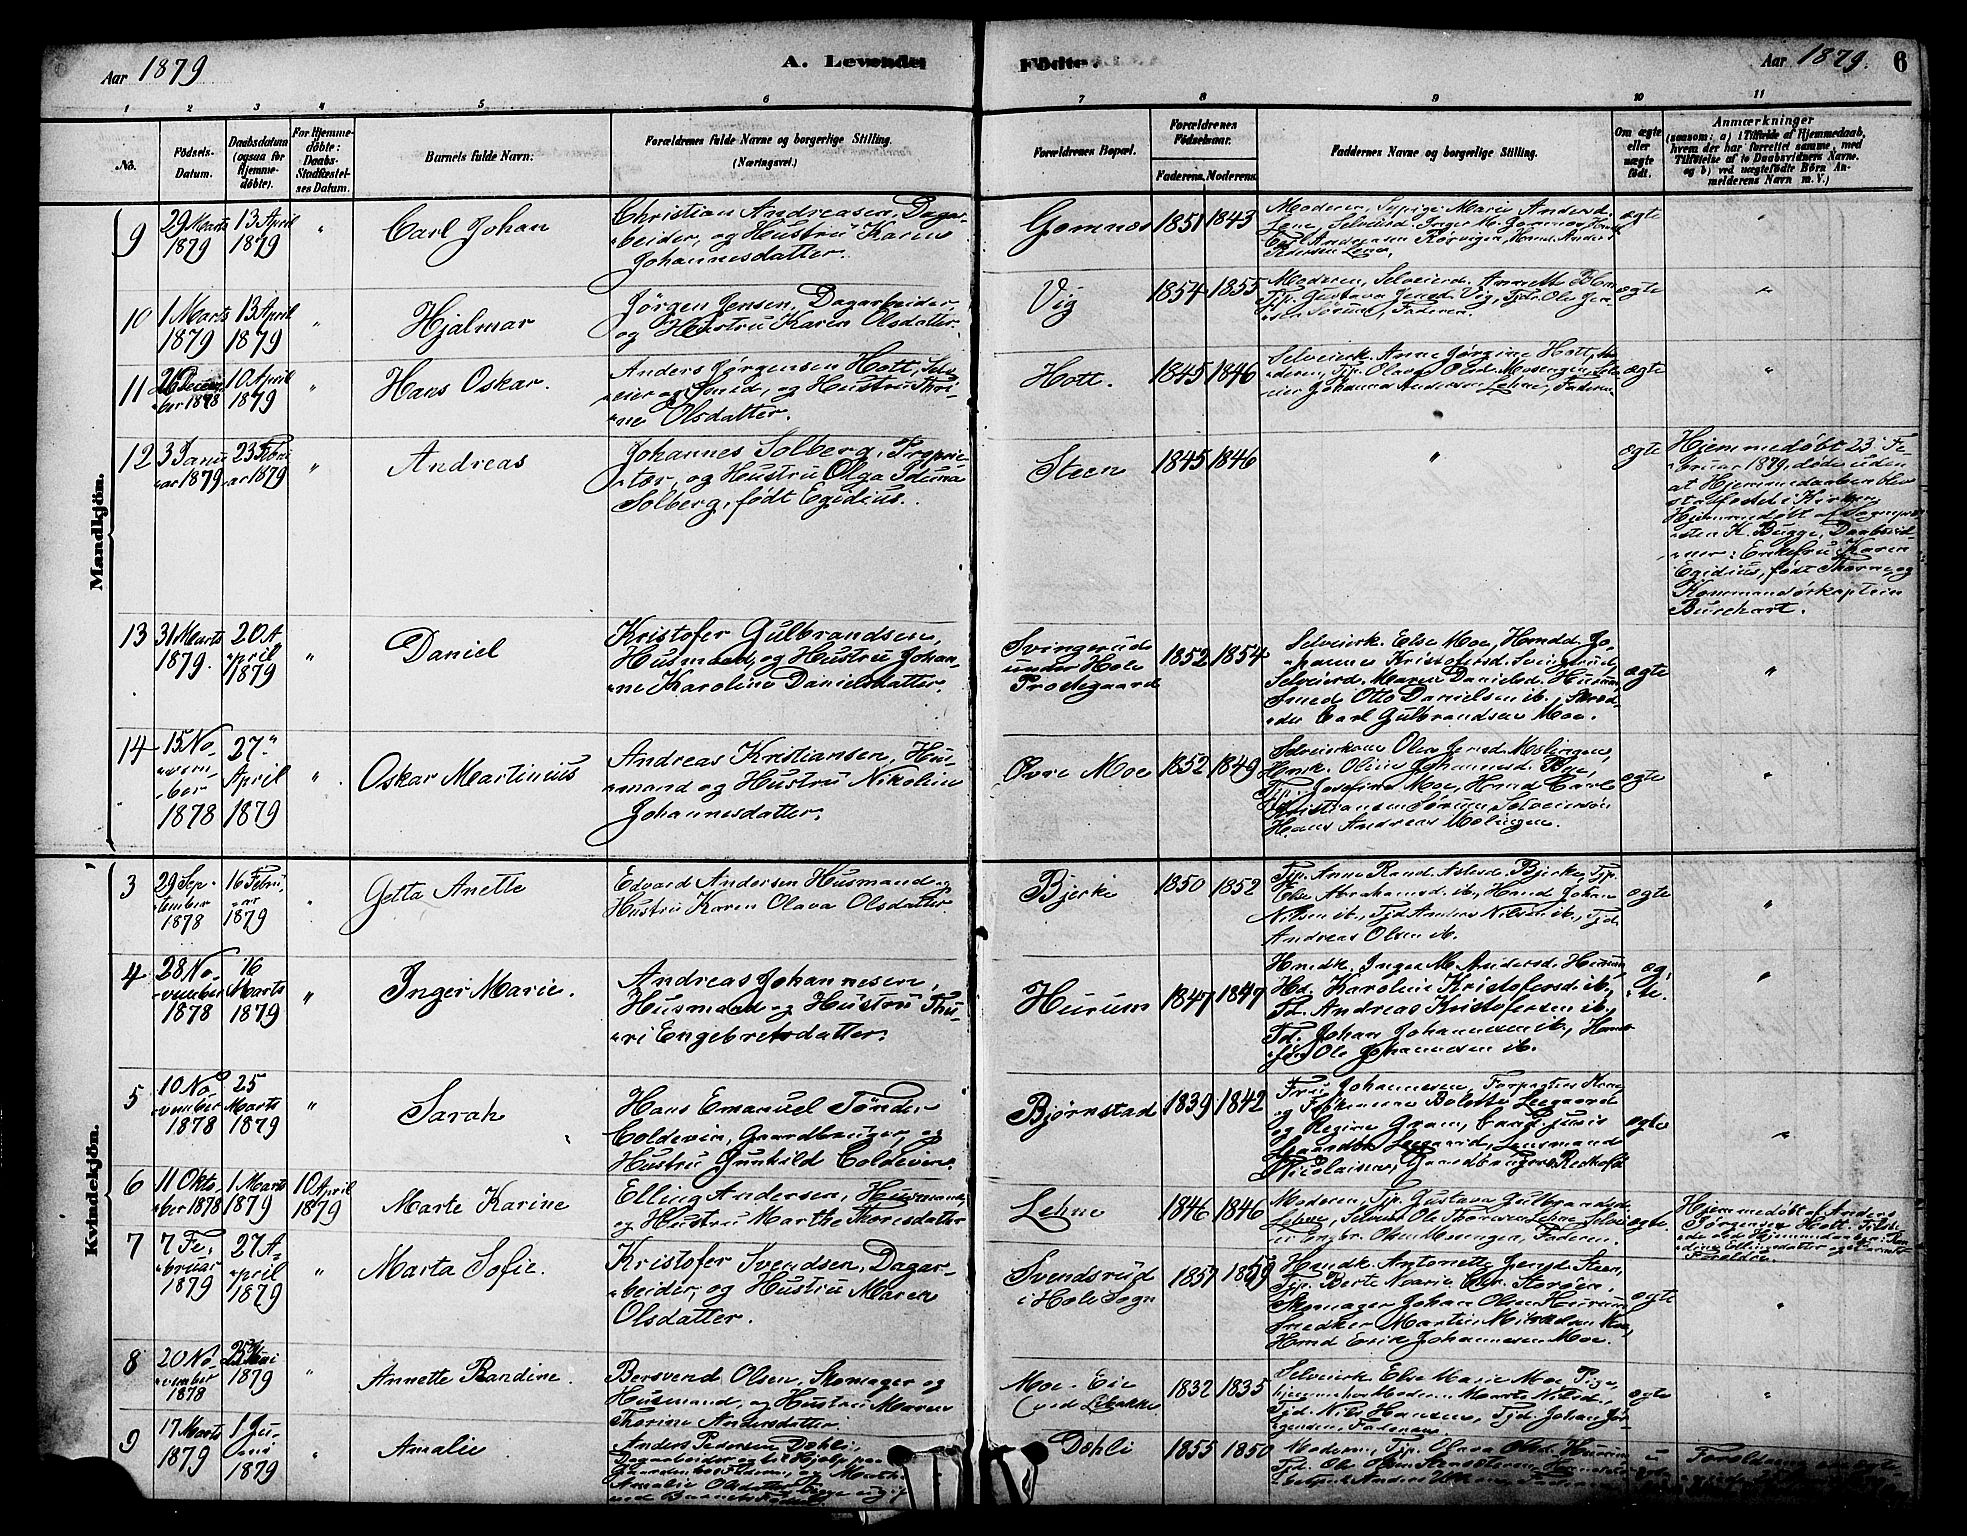 Aar 1879
A. Levende
Fødte.
Aar 1879.
6
1 2 3 4 5 6 7 8 9 10 11
No.
Fødsels-
Datum.
Daabsdatum
(ogsaa for
Hjemme-
døbte).
For Hjemme-
døbte:
Daabs-
Stadfæstel-
ses Datum.
Barnets fulde Navn:
Forældrenes fulde Navne og borgerlige Stilling.
(Næringsvei.)
Forældrenes Bopæl.
Forældrenes
Fødselsaar.
Faderens. Moderens.
Faddernes Navne og borgerlige Stilling.
Om ægte
eller
uægte
født.
Anmærkninger
(saasom: a) i Tilfælde af Hjemmedaab,
hvem der har forrettet samme, med
Tilføielse af to Daabsvidners Navne.
og b) ved uægtefødte Børn An-
melderens Navn m. V.)
Mandkjön.
9
29 Marts
1879
13 April
1879
"
Carl Johan
Christian Andreasen, Dagar-
beider, og Hustru Karen
Johannesdatter.
Gomnes
1851 1843
Moderen,
Carl Andreasen Rörvigen, Anders
Pedersen Lene,
ægte
"
10
1 Marts
1879
13 April
1879
"
Hjalmar
Jörgen Jensen, Dagarbeider,
og Hustru Karen Olsdatter.
Vig
1854 1855
Moderen, Selveierd. Annette
Tjp. Gustava Jensd. Vig, Tjd. Ole Jen-
sen Sörum, Faderen.
ægte
"
11
26 Decem-
ber 1878
10 April
1879
"
Hans Oskar.
Anders Jørgensen Hott, Selv-
eier og Smed, og Hustru Thri-
ne Olsdatter.
Hott.
1845 1846
Selveierk. Anne Jørgine Hott, Mo-
deren, Tjp. Olava Olsd. Mosengen, Selv-
eier Johannes Andersen Lehne, Faderen
ægte
"
12
3 Janu-
ar 1879
23 Febru-
ar 1879
"
Andreas
Johannes Solberg, Proprie-
tær, og Hustru Olga Iduna
Solberg, født Egidius.
Steen
1845 1846
"
ægte
Hjemmedøbt 23 Fe-
bruar 1879, døde uden
at Hjemmedaaben blev
stadfæstet i Kirken,
Hjemmedøbt af Sognepræ-
sten K. Bugge, Daabsvid-
ner: Enkefru Karen
Egidius, født Thorne, og
Kommandørkaptein
Burchart.
13
31 Marts
1879.
20 A-
pril
1879
"
Daniel
Kristofer Gulbrandsen,
Husmand, og Hustru Johan-
ne Karoline Danielsdatter.
Svingerud
under Hole
Prostegaard
1852 1854
Selveierk. Else Moe, Hmdd. Jo-
hanne Kristofersd. Svingerud,
Selveierd. Maren Danielsd. Hurum,
Smed Otto Danielsen ib., Skræd-
der Carl Gulbrandsen Moe.
ægte
"
14
15 No-
vem-
ber
1878
27"
April
1879
"
Oskar Martinius
Andreas Kristiansen, Hus-
mand og Hustru Nikoline
Johannesdatter.
Øvre Moe
1852 1849
Selveierkone Olea Jensd. Molingen,
Hmk. Oline Johannesd.
Tjp. Josefine Moe, Hmd Carl
Kristiansen Sørum Selveiersön
Hans Andreas Molingen.
ægte
"
Kvindekjön.
3
29 Sep-
tember
1878
16 Febru-
ar
1879
"
Getta Anette
Edvard Andersen Husmand og
Hustru Karen Olava Olsdatter.
Bjerke
1850 1852
Tjp. Anne Rand. Bjerke, Tjp.
Else Abrahamsd. ib., Hmd Johan
Nilsen ib., Tjd. Anders Nilsen ib., Tjd.
Andreas Olsen ib.
ægte
"
4
28 No-
vember
1878
16
Marts
1879
"
Inger Marie.
Andreas Johannesen,
Husmand og Hustru Thu-
ri Engebretsdatter.
Hurum
1847 1847
Hmdk. Inger M. Andersd. Hurum
Hd. Karoline Kristofersd. ib.,
Fd. Andreas Kristofersen ib.,
Fd. Johan Johannesen ib.,
Ole Johannesen ib.
æg-
te.
"
5
10 No-
vember
1878
25
Marts
1879
"
Sarah
Hans Emanuel Tønder
Coldevin, Gaardbruger, og
Hustru Gunhild Coldevin.
Bjørnstad
1839 1842
Fru Johannesen, Forpagters Kone
og Frøknerne Bolette Leegaard
og Regine Gram, Cand. juris
Leegaard, Lensmand
Nicolaisen, Gaardbruger
ægte
"
6
11 Okto-
ber 1878
1 Marts
1879
10 April
1879
Marte Karine
Elling Andersen, Husmand,
og Hustru Marthe Thoresdatter
Lehne
1846 1846
Moderen, Tjp. Gustava Gulbrandsd.
Lehne, Selveier Ole Thoresen Lehne, Selvei-
er Engbr. Olsen Mosengen, Faderen.
ægte.
Hjemmedøbt af Anders
Jørgensen Hott.
7
7 Fe-
bruar
1879
27 A-
pril
1879
"
Marta Sofie.
Kristofer Svendsen, Dagar-
beider, og Hustru Maren
Olsdatter.
Svendsrud
i Hole Sogn
1857 1859
Hmdk. Antonette Jensd. Steen,
Tjp. Berte Marie Chr. Storøen,
Skomager Johan Olsen Hurum
Snedker Martin Moe,
Hmd Erik Johannesen Moe.
ægte
"
8
20 No-
vember
1878
Mai
1879
"
Annette Randine.
Bersvend Olsen, Skomager og
Husmand, og Hustru Maren
Thorine Andersdatter.
Moe-Eie
1832 1835
Selveierk. Else Marie Moe, Pige,
hjemme hos Moderen Marte Nilsd.,
Tjd. Nils Hansen, Tjd. Johan Jør-
gensen, Faderen.
ægte
"
9
17 Marts
1879
1 Ju-
ni
1879
"
Amalie
Anders Pedersen Dæhli,
Dagarbeider og til Hjælp paa
Gaarden hos Faderen, og Marthe
Amalie Olsdatter
Dæhli
1855 1850
Moderen, Tjp. Olava Olsd. Hurum